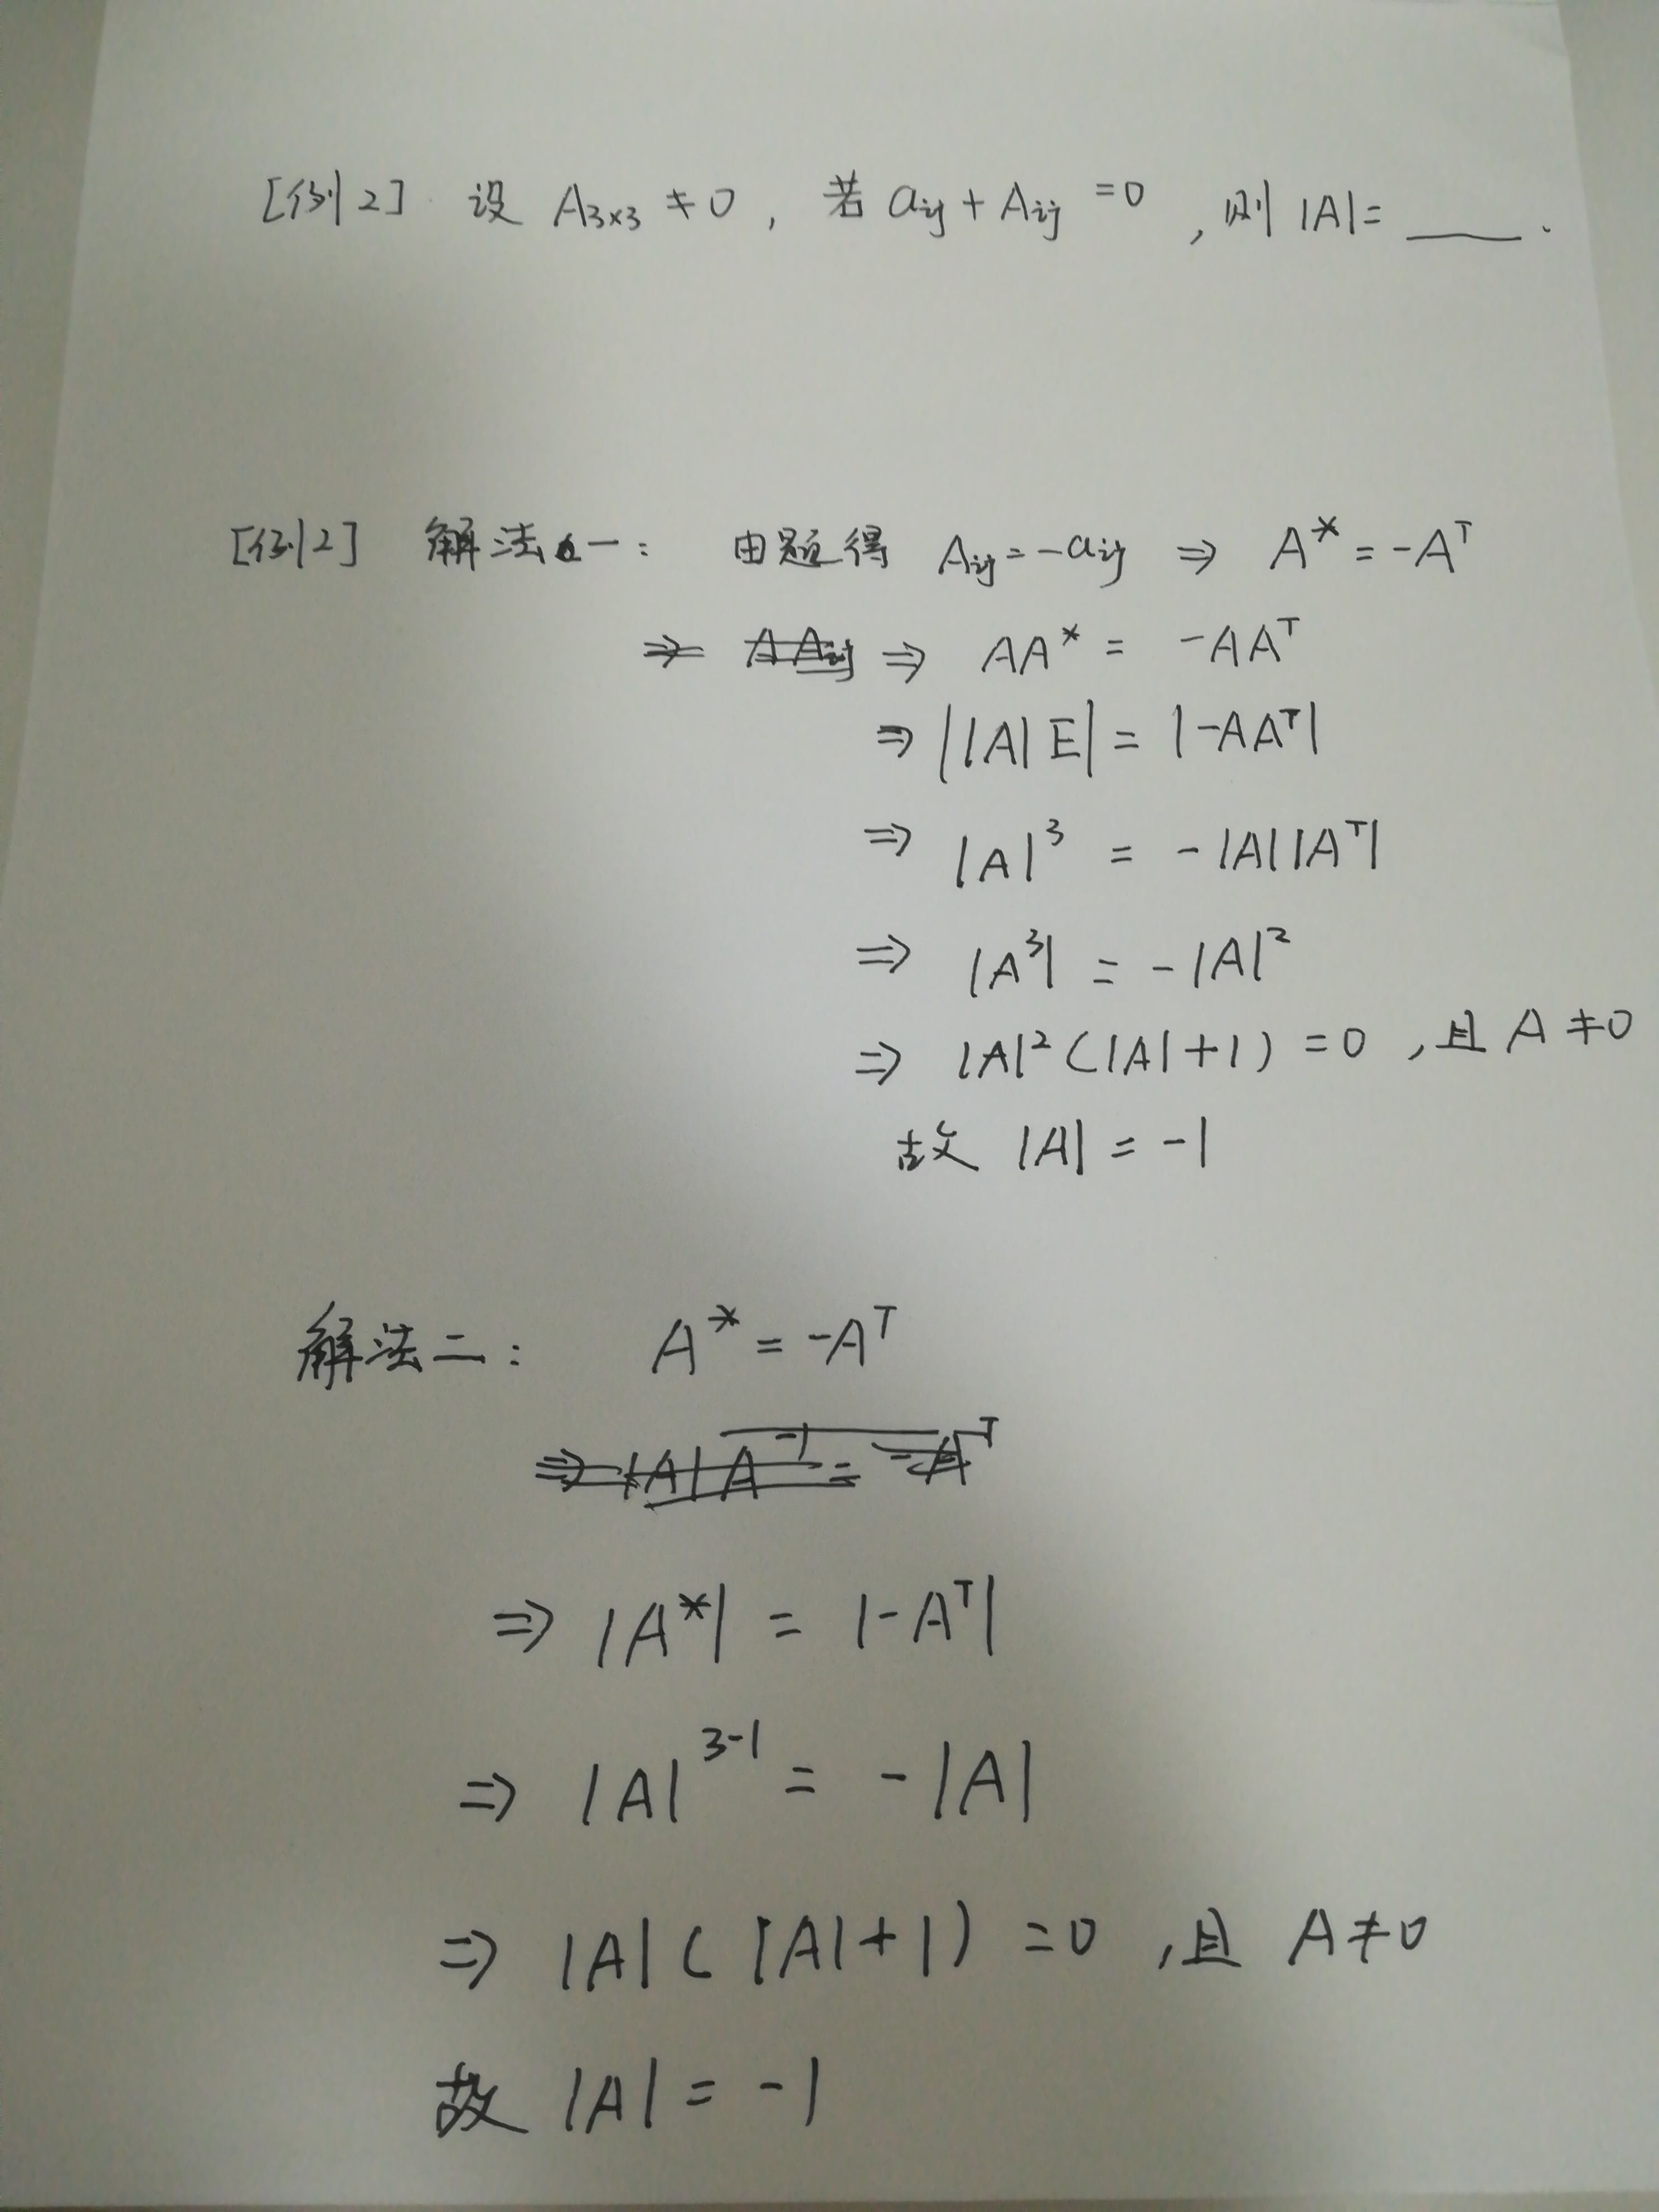 [例2] 设 A₃ₓ₃ ≠ 0, 若 aᵢⱼ + Aᵢⱼ = 0, 则 |A| = ____.
[例2] 解法一: 由题得 Aᵢⱼ = -aᵢⱼ ⇒ A* = -Aᵀ
⇒ AAᵢⱼ ⇒ AA* = -AAᵀ
⇒ ||A|E| = |-AAᵀ|
⇒ |A|³ = -|A||Aᵀ|
⇒ |A³| = -|A|²
⇒ |A|²(|A|+1) = 0, 且 A ≠ 0
故 |A| = -1
解法二: A* = -Aᵀ
⇒ |A|A⁻¹ = -Aᵀ
⇒ |A*| = |-Aᵀ|
⇒ |A|³⁻¹ = -|A|
⇒ |A|(|A|+1) = 0, 且 A ≠ 0
故 |A| = -1